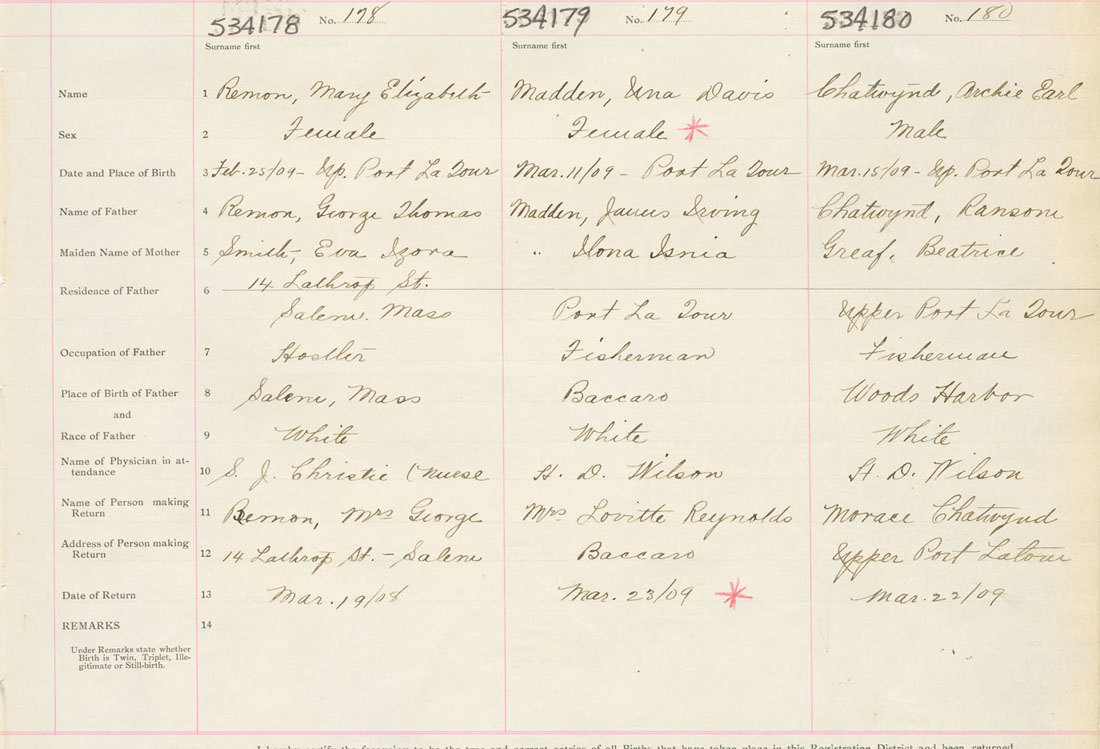 534178 No. 178 534179 No. 179 534180 No. 180
Surname first Surname first Surname first
Name 1 Remon, Mary Elizabeth Madden, Una Davis Chatwynd, Archie Earl
Sex 2 Female Female * Male
Date and Place of Birth 3 Feb. 25/09 - Up. Port La Tour Mar. 11/09 - Port La Tour Mar. 15/09 - Up. Port La Tour
Name of Father 4 Remon, George Thomas Madden, James Irving Chatwynd, Ransom
Maiden Name of Mother 5 Smith, Eva Izora " Ilona Isnia Greaf, Beatrice
Residence of Father 6 14 Lathrop St.
Salem. Mass Port La Tour Upper Port La Tour
Occupation of Father 7 Hostler Fisherman Fisherman
Place of Birth of Father 8 Salem, Mass Baccaro Woods Harbor
and
Race of Father 9 White White White
Name of Physician in at-
tendance 10 S. J. Christie (Nurse H. D. Wilson H. D. Wilson
Name of Person making
Return 11 Remon, Mrs George Mrs Lovitte Reynolds Morace Chatwynd
Address of Person making
Return 12 14 Lathrop St. - Salem Baccaro Upper Port Latour
Date of Return 13 Mar. 19/08 Mar. 23/09 * Mar. 22/09
REMARKS 14
Under Remarks state whether
Birth is Twin, Triplet, Ille-
gitimate or Still-birth.
I hereby certify the foregoing to be the true and correct entries of all Births that have taken place in this Registration District and been returned